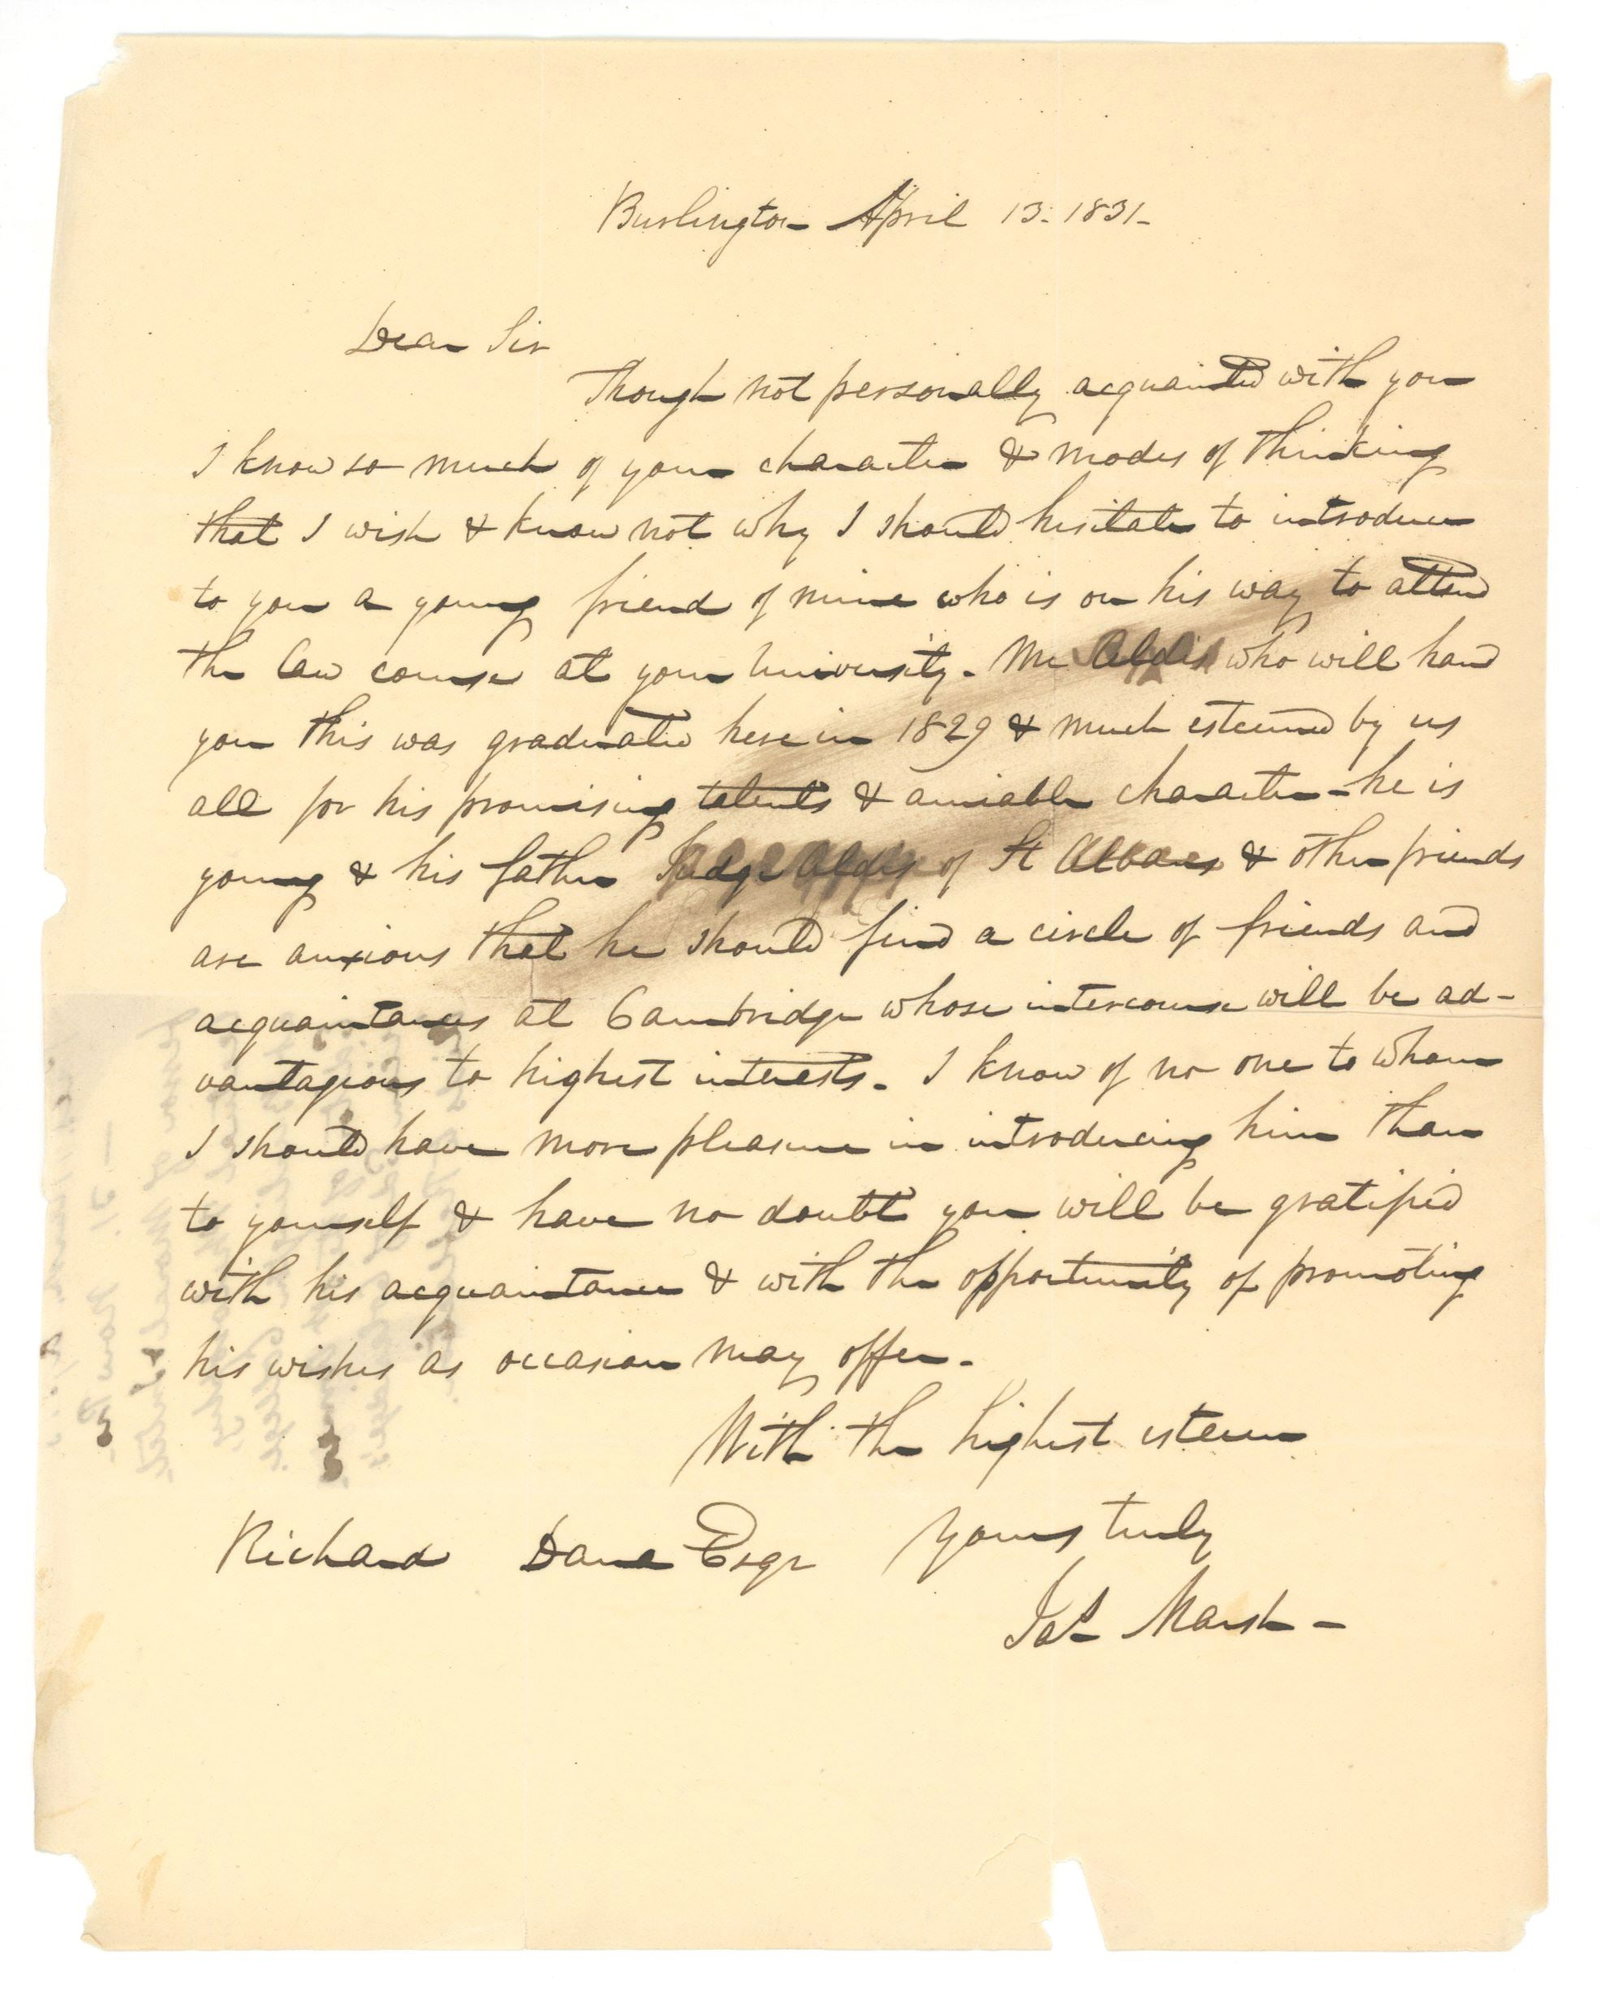 Burlington April 13. 1831-
Dear Sir
Though not personally acquainted with you
I know so much of your character & modes of thinking
that I wish & know not why I should hesitate to introduce
to you a young friend of mine who is on his way to attend
the Law course at your University. Mr Aldis who will hand
you this was graduated here in 1829 & much esteemed by us
all for his promising talents & amiable character - he is
young & his father Judge Aldis of St Albans & other friends
are anxious that he should find a circle of friends and
acquaintances at Cambridge whose intercourse will be ad-
vantagious to highest interests. I know of no one to whom
I should have more pleasure in introducing him than
to yourself & have no doubt you will be gratified
with his acquaintance & with the opportunity of promoting
his wishes as occasion may offer.
With the highest esteem
Yours truly
Richard Dana Esqr
Jas Marsh -